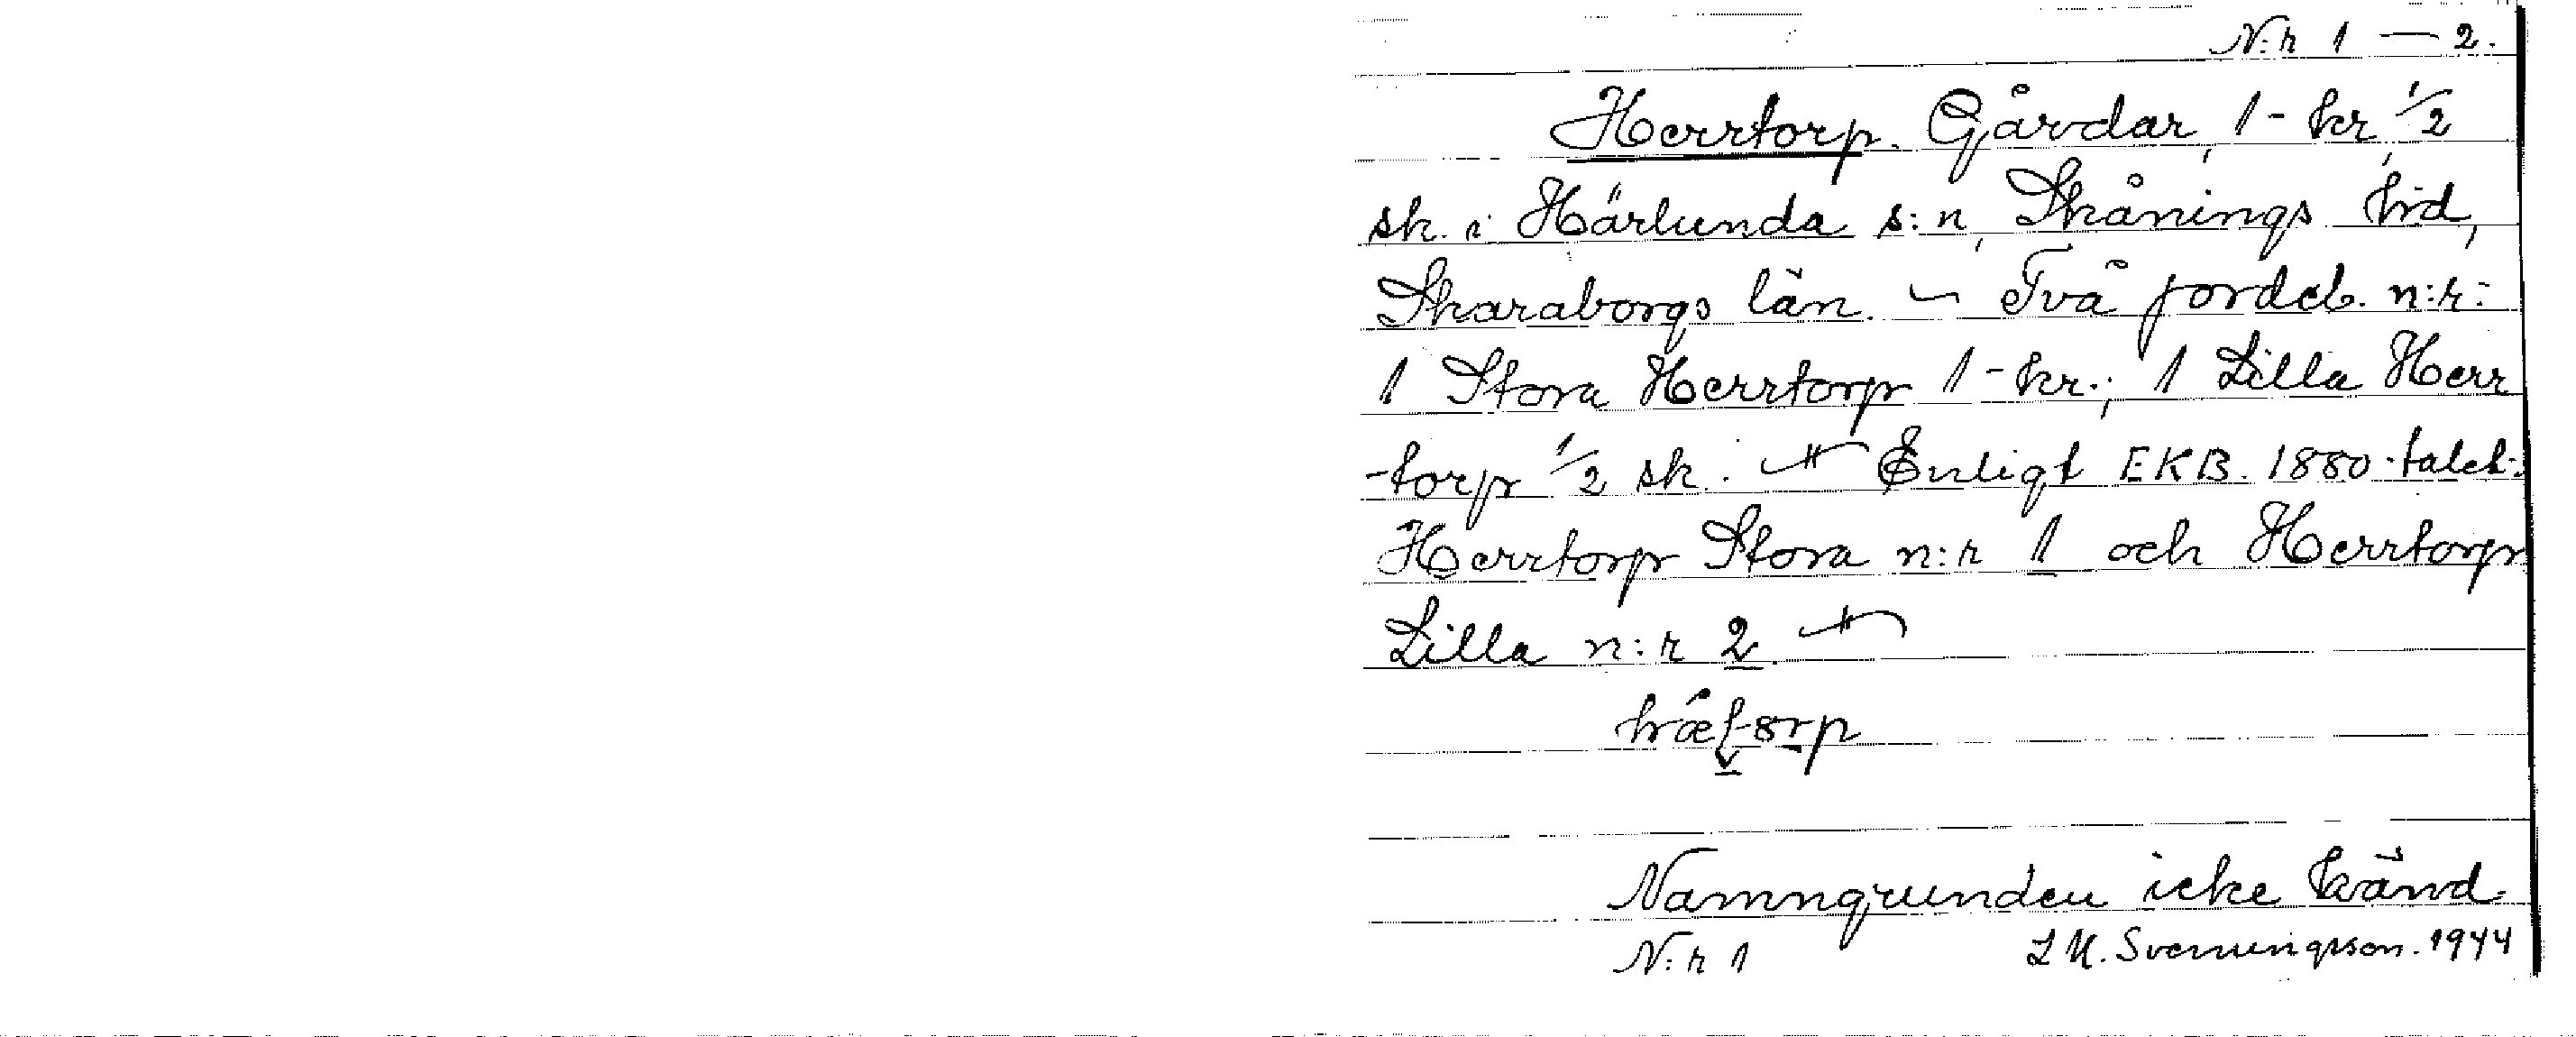 N:r 1 — 2.
Herrtorp. Gårdar, 1 - kr, 1/2
sk. i Härlunda s:n, Skånings hd,
Skaraborgs län. — Två jordeb. n:r:
1 Stora Herrtorp 1 - kr.; 1 Lilla Herr
-torp 1/2 sk. — Enligt EKB. 1880-talet:
Herrtorp Stora n:r 1 och Herrtorp
Lilla n:r 2. —
Namngrunden icke känd
N:r 1 L M. Svenungsson. 1944